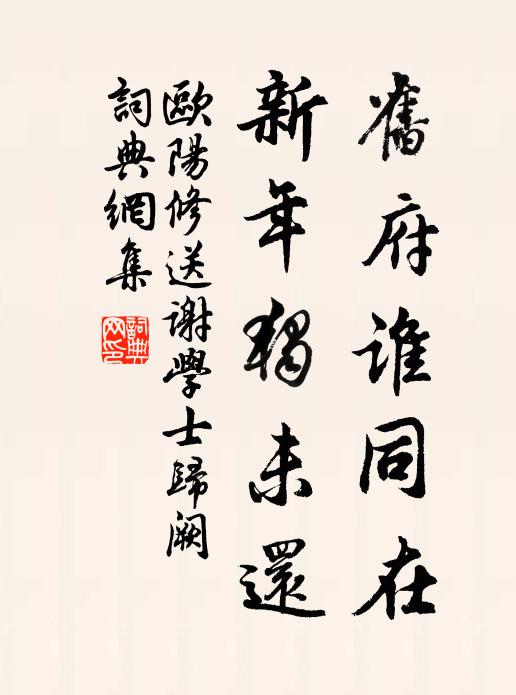 舊府誰同在
新年獨未還
歐陽修送謝學士歸闕
詞典網集
詞典
网印